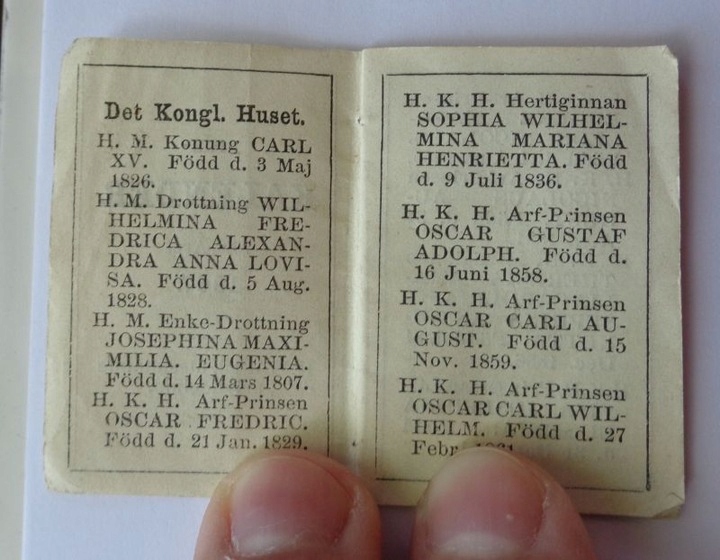 Det Kongl. Huset.
H. M. Konung CARL
XV. Född d. 3 Maj
1826.
H. M. Drottning WIL-
HELMINA FRE-
DRICA ALEXAN-
DRA ANNA LOVI-
SA. Född d. 5 Aug.
1828.
H. M. Enke-Drottning
JOSEPHINA MAXI-
MILIA. EUGENIA.
Född d. 14 Mars 1807.
H. K. H. Arf-Prinsen
OSCAR FREDRIC.
Född d. 21 Jan. 1829.
H. K. H. Hertiginnan
SOPHIA WILHEL-
MINA MARIANA
HENRIETTA. Född
d. 9 Juli 1836.
H. K. H. Arf-Prinsen
OSCAR GUSTAF
ADOLPH. Född d.
16 Juni 1858.
H. K. H. Arf-Prinsen
OSCAR CARL AU-
GUST. Född d. 15
Nov. 1859.
H. K. H. Arf-Prinsen
OSCAR CARL WIL-
HELM. Född d. 27
Febr.